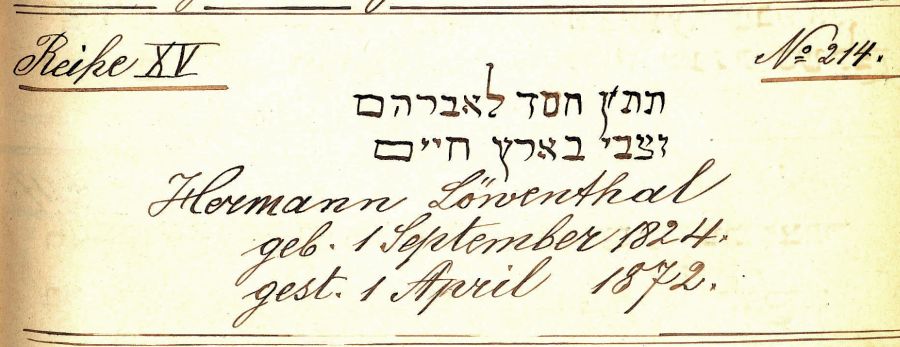 Reihe XV
No 214.
תתן חסד לאברהם
וצבי בארץ חיים
Hermann Löwenthal
geb. 1 September 1824.
gest. 1 April 1872.